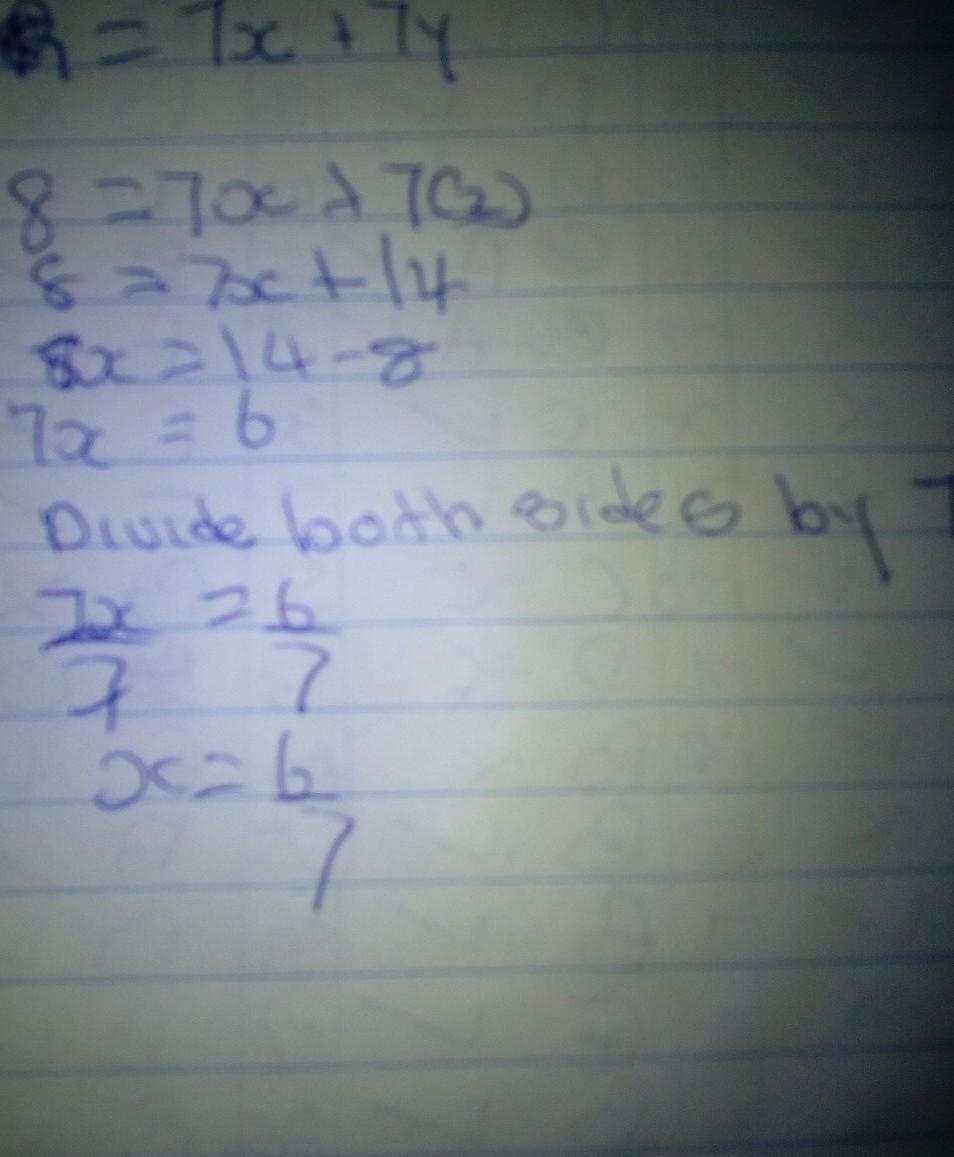 = 7x + 7y
8 = 7x + 7(2)
8 = 7x + 14
x = 14 - 8
7x = 6
Divide both sides by 7
7x = 6
7 7
x = 6
7